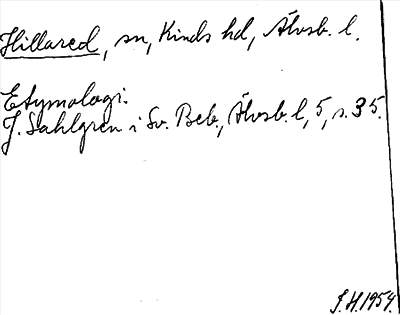 Hillared, sn, Kinds hd, Älvsb. l.
Etymologi:
J. Sahlgren i Sv. Beb., Älvsb. l, 5, s. 35.
J. H. 1954.